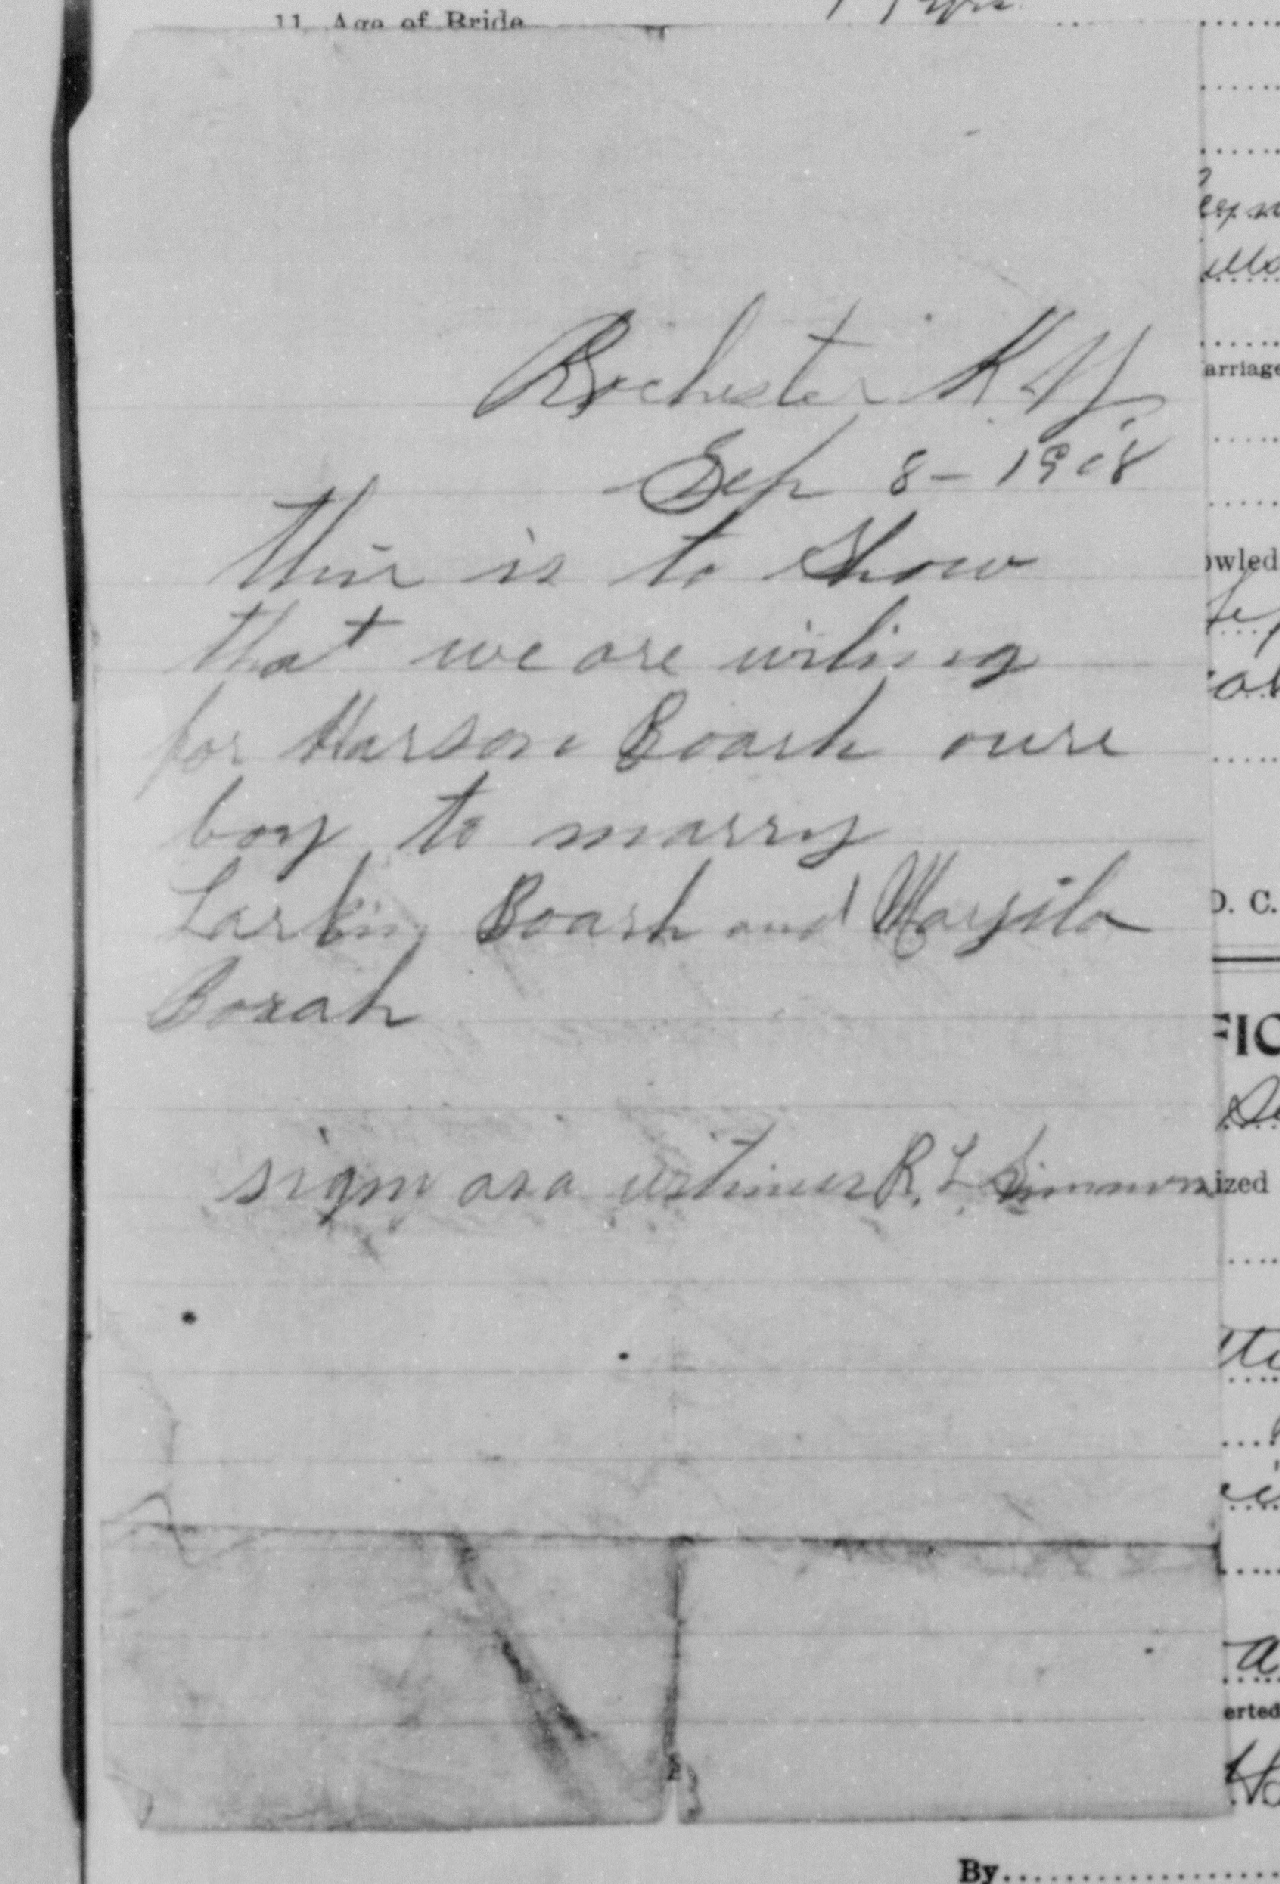 11. Age of Bride
Rochester K.Y.
Sep 8-1908
this is to show
that we are wiling
for Harson Boarh oure
boy to marry
Larking Boarh and
Borah
sign as a R. L. Simmons
arriage
owled
D. C.
FIC
ized
erted
By